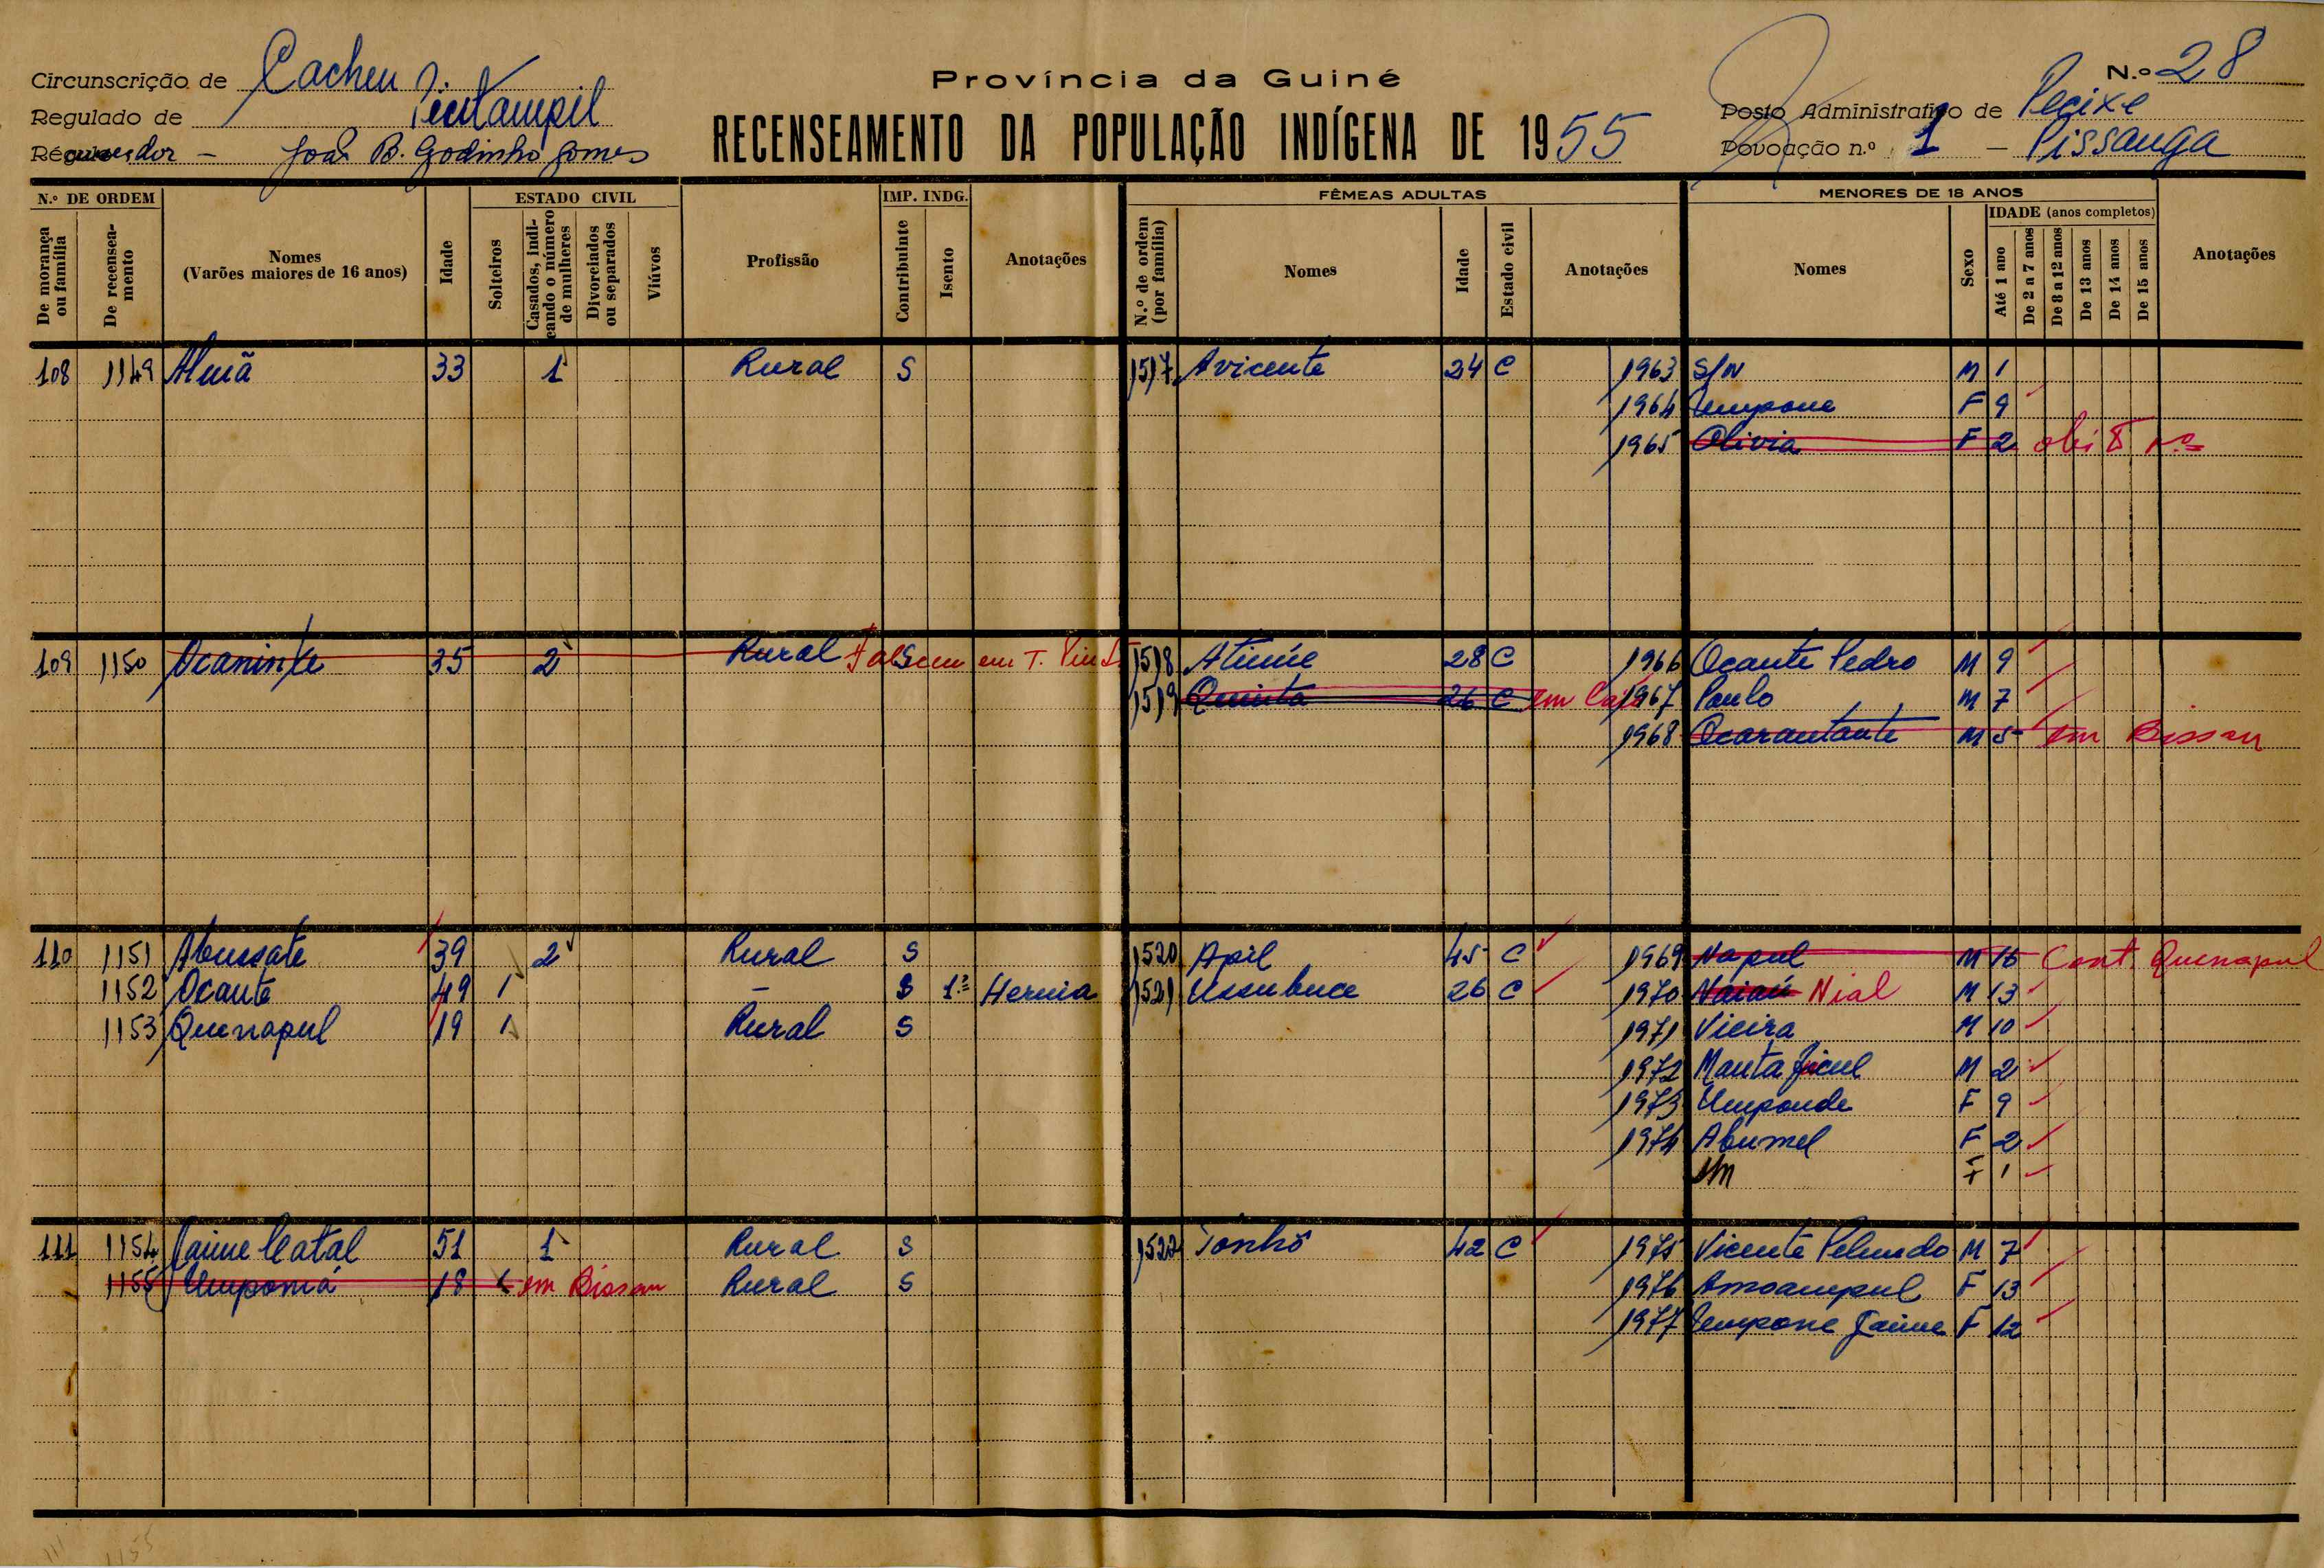 Circunscrição de Cacheu
Província da Guiné
N.º 28
Regulado de Tientampil
Posto Administrativo de Pecixe
RECENSEAMENTO DA POPULAÇÃO INDÍGENA DE 1955
João B. Godinho Gomes
Povoação n.º 1 - Pissanga
N.º DE ORDEM
De morança ou família
De recenseamento
Nomes
(Varões maiores de 16 anos)
Idade
ESTADO CIVIL
Solteiros
Casados, indicando o número de mulheres
Divorciados ou separados
Viúvos
Profissão
IMP. INDG.
Contribuinte
Isento
Anotações
FÊMEAS ADULTAS
N.º de ordem (por família)
Nomes
Idade
Estado civil
Anotações
MENORES DE 18 ANOS
Nomes
Sexo
IDADE (anos completos)
Até 1 ano
De 2 a 7 anos
De 8 a 12 anos
De 13 anos
De 14 anos
De 15 anos
Anotações
108 1149 33 1 Rural S 1517 Avicente 24 C 1963 S/N M 1
1964 Umpone F 9
1965 Olivia F 2
109 1150 Ocaninte 35 2 Rural S em T. 1518 28 C 1966 Ocante Pedro M 9
1519 Quinta 26 C em 1967 Paulo M 7
1968 Ocarantante M 5 em Bissau
110 1151 Abussate 39 2 Rural S 1520 Apil 45 C 1969 Napul M 16 Cont. Quenapul
1152 Ocante 49 1 - S 1.º Hernia 1521 Ussubuce 26 C 1970 Naiaú Nial M 13
1153 Quenapul 19 1 Rural S 1971 Vieira M 10
1972 Manta M 2
1973 Umponde F 9
1974 Abumel F 2
F 1
111 1154 Jaime Catal 51 1 Rural S 1522 Tonhô 42 C 1975 Vicente M 7
1155 Umpomá 18 em Bissau Rural S 1976 Amoampul F 13
1977 Umpone Jaime F 12
111
1155